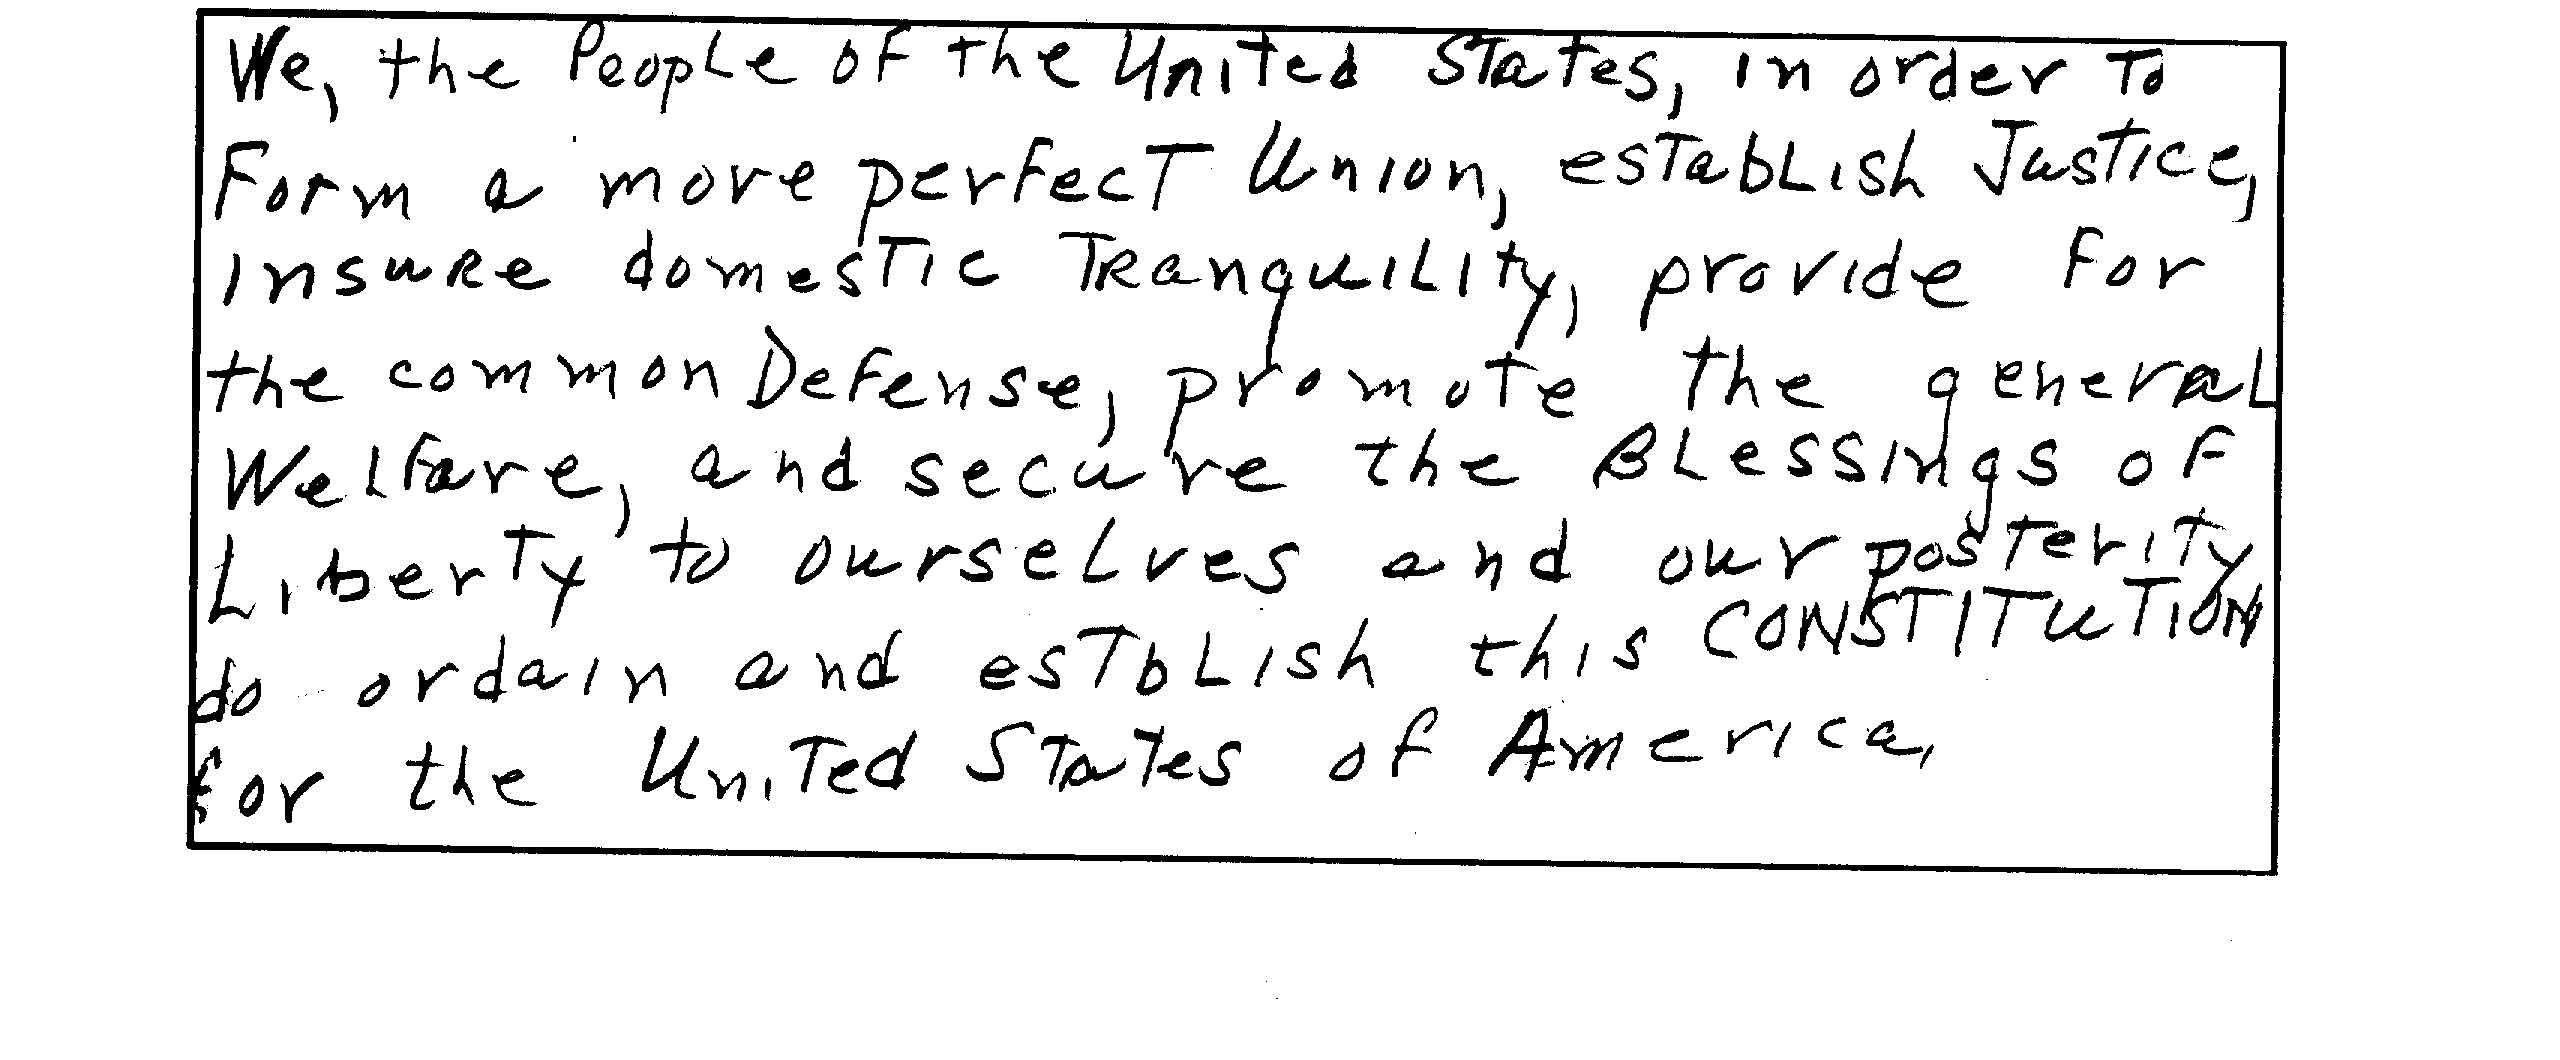 We, the People of the United States, in order to
form a more perfect Union, establish Justice,
insure domestic Tranquility, provide for
the common Defense, promote the general
Welfare, and secure the Blessings of
Liberty to ourselves and our posterity
do ordain and estblish this CONSTITUTION
for the United States of America.